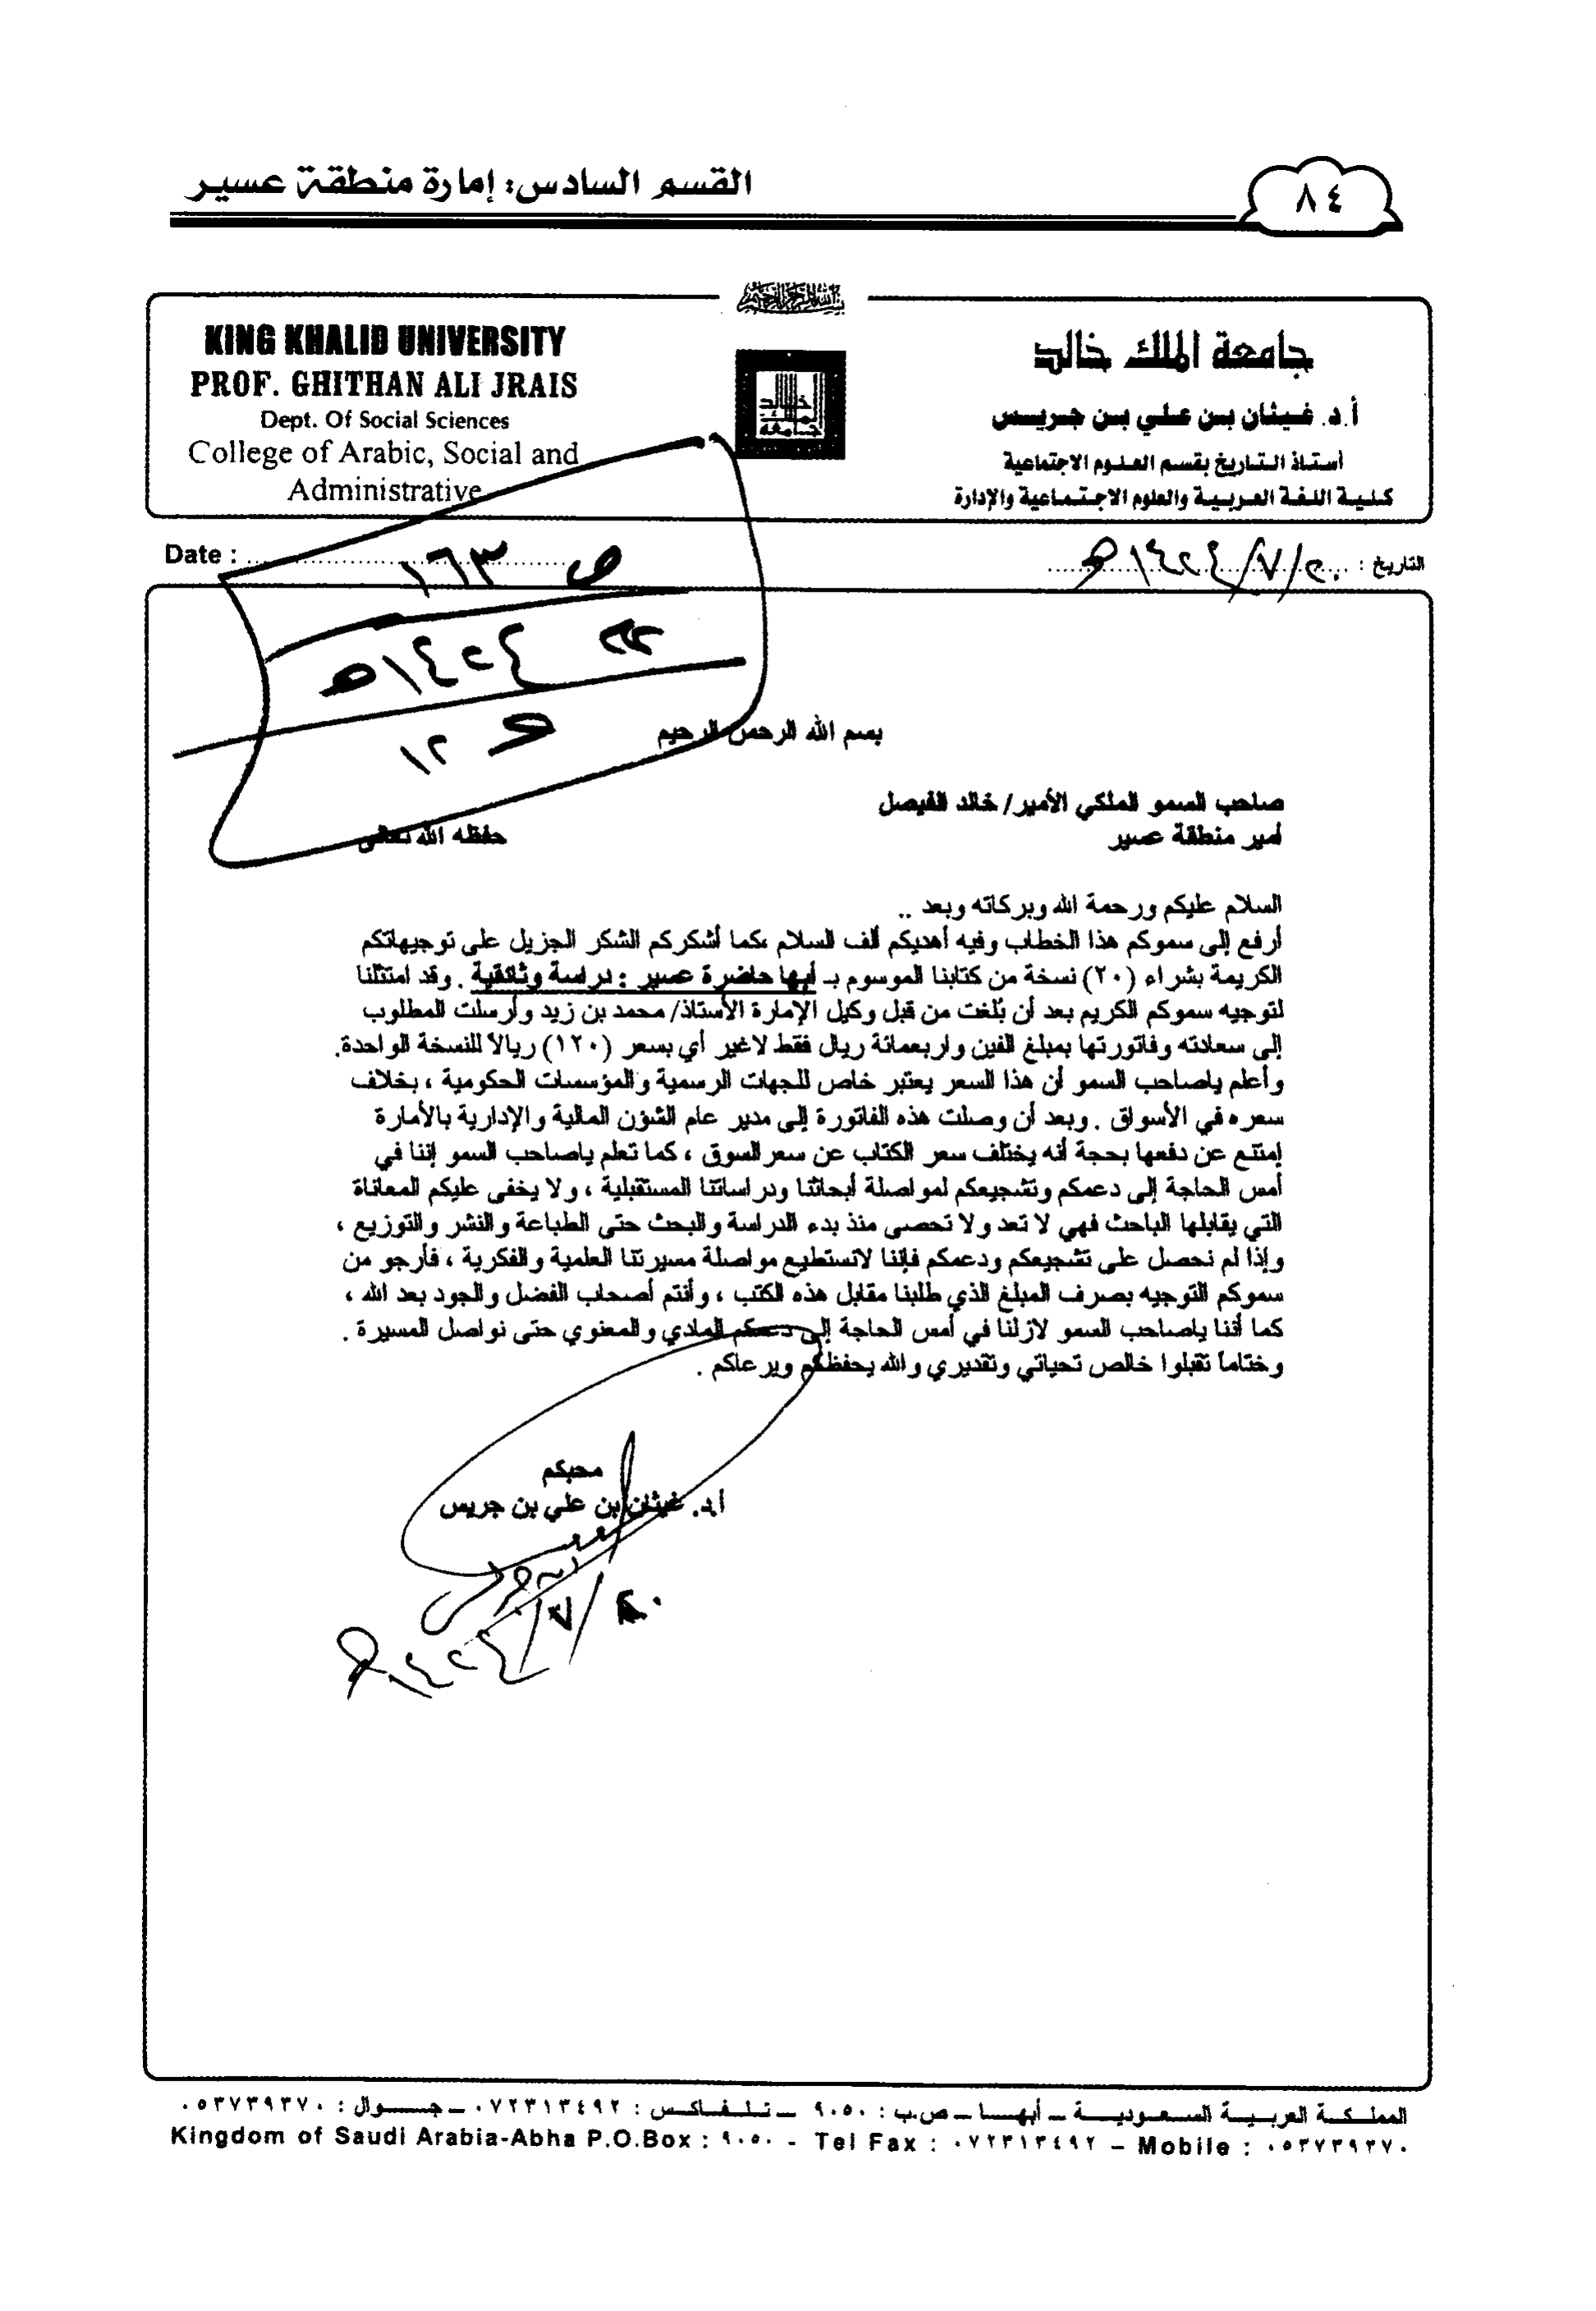 القسم السادس: إمارة منطقة عسير
٨٤
جامعة الملك خالد
أ.د. غيثان بن علي بن جريس
أستاذ التاريخ بقسم العلوم الاجتماعية
كلية اللغة العربية والعلوم الاجتماعية والإدارة
KING KHALID UNIVERSITY
PROF. GHITHAN ALI JRAIS
Dept. Of Social Sciences
College of Arabic, Social and
Administrative
خالد
الملك
جامعة
التاريخ : ٢٠/٧/١٤٢٤هـ
Date :
ص ١٦٣
١٤٢٤هـ
و ١٢
بسم الله الرحمن الرحيم
صاحب السمو الملكي الأمير/ خالد الفيصل
أمير منطقة عسير
حفظه الله تعالى
السلام عليكم ورحمة الله وبركاته وبعد ..
أرفع إلى سموكم هذا الخطاب وفيه أهديكم ألف السلام ،كما أشكركم الشكر الجزيل على توجيهاتكم
الكريمة بشراء (٢٠) نسخة من كتابنا الموسوم بـ أبها حاضرة عسير : دراسة وثائقية . وقد امتثلنا
لتوجيه سموكم الكريم بعد أن بُلغت من قبل وكيل الإمارة الأستاذ/ محمد بن زيد وأرسلت المطلوب
إلى سعادته وفاتورتها بمبلغ الفين واربعمائة ريال فقط لاغير أي بسعر (١٢٠) ريالاً للنسخة الواحدة.
وأعلم ياصاحب السمو أن هذا السعر يعتبر خاص للجهات الرسمية والمؤسسات الحكومية ، بخلاف
سعره في الأسواق . وبعد أن وصلت هذه الفاتورة إلى مدير عام الشؤن المالية والإدارية بالأمارة
إمتنع عن دفعها بحجة أنه يختلف سعر الكتاب عن سعر السوق ، كما تعلم ياصاحب السمو إننا في
أمس الحاجة إلى دعمكم وتشجيعكم لمواصلة أبحاثنا ودراساتنا المستقبلية ، ولا يخفى عليكم المعاناة
التي يقابلها الباحث فهي لا تعد ولا تحصى منذ بدء الدراسة والبحث حتى الطباعة والنشر والتوزيع ،
وإذا لم نحصل على تشجيعكم ودعمكم فإننا لانستطيع مواصلة مسيرتنا العلمية والفكرية ، فأرجو من
سموكم التوجيه بصرف المبلغ الذي طلبنا مقابل هذه الكتب ، وأنتم أصحاب الفضل والجود بعد الله ،
كما أننا ياصاحب السمو لازلنا في أمس الحاجة إلى دعمكم المادي والمعنوي حتى نواصل المسيرة .
وختاماً تقبلوا خالص تحياتي وتقديري والله يحفظكم ويرعاكم .
محبكم
أ.د. غيثان بن علي بن جريس
٢٠/٧/١٤٢٤هـ
المملكة العربية السعودية – أبها – ص.ب : ٩٠٥٠ – تلفاكس : ٠٧٢٣١٣٤٩٢ – جوال : ٠٥٣٧٣٩٣٧٠
Kingdom of Saudi Arabia-Abha P.O.Box : ٩٠٥٠ - Tel Fax : ٠٧٢٣١٣٤٩٢ – Mobile : ٠٥٣٧٣٩٣٧٠